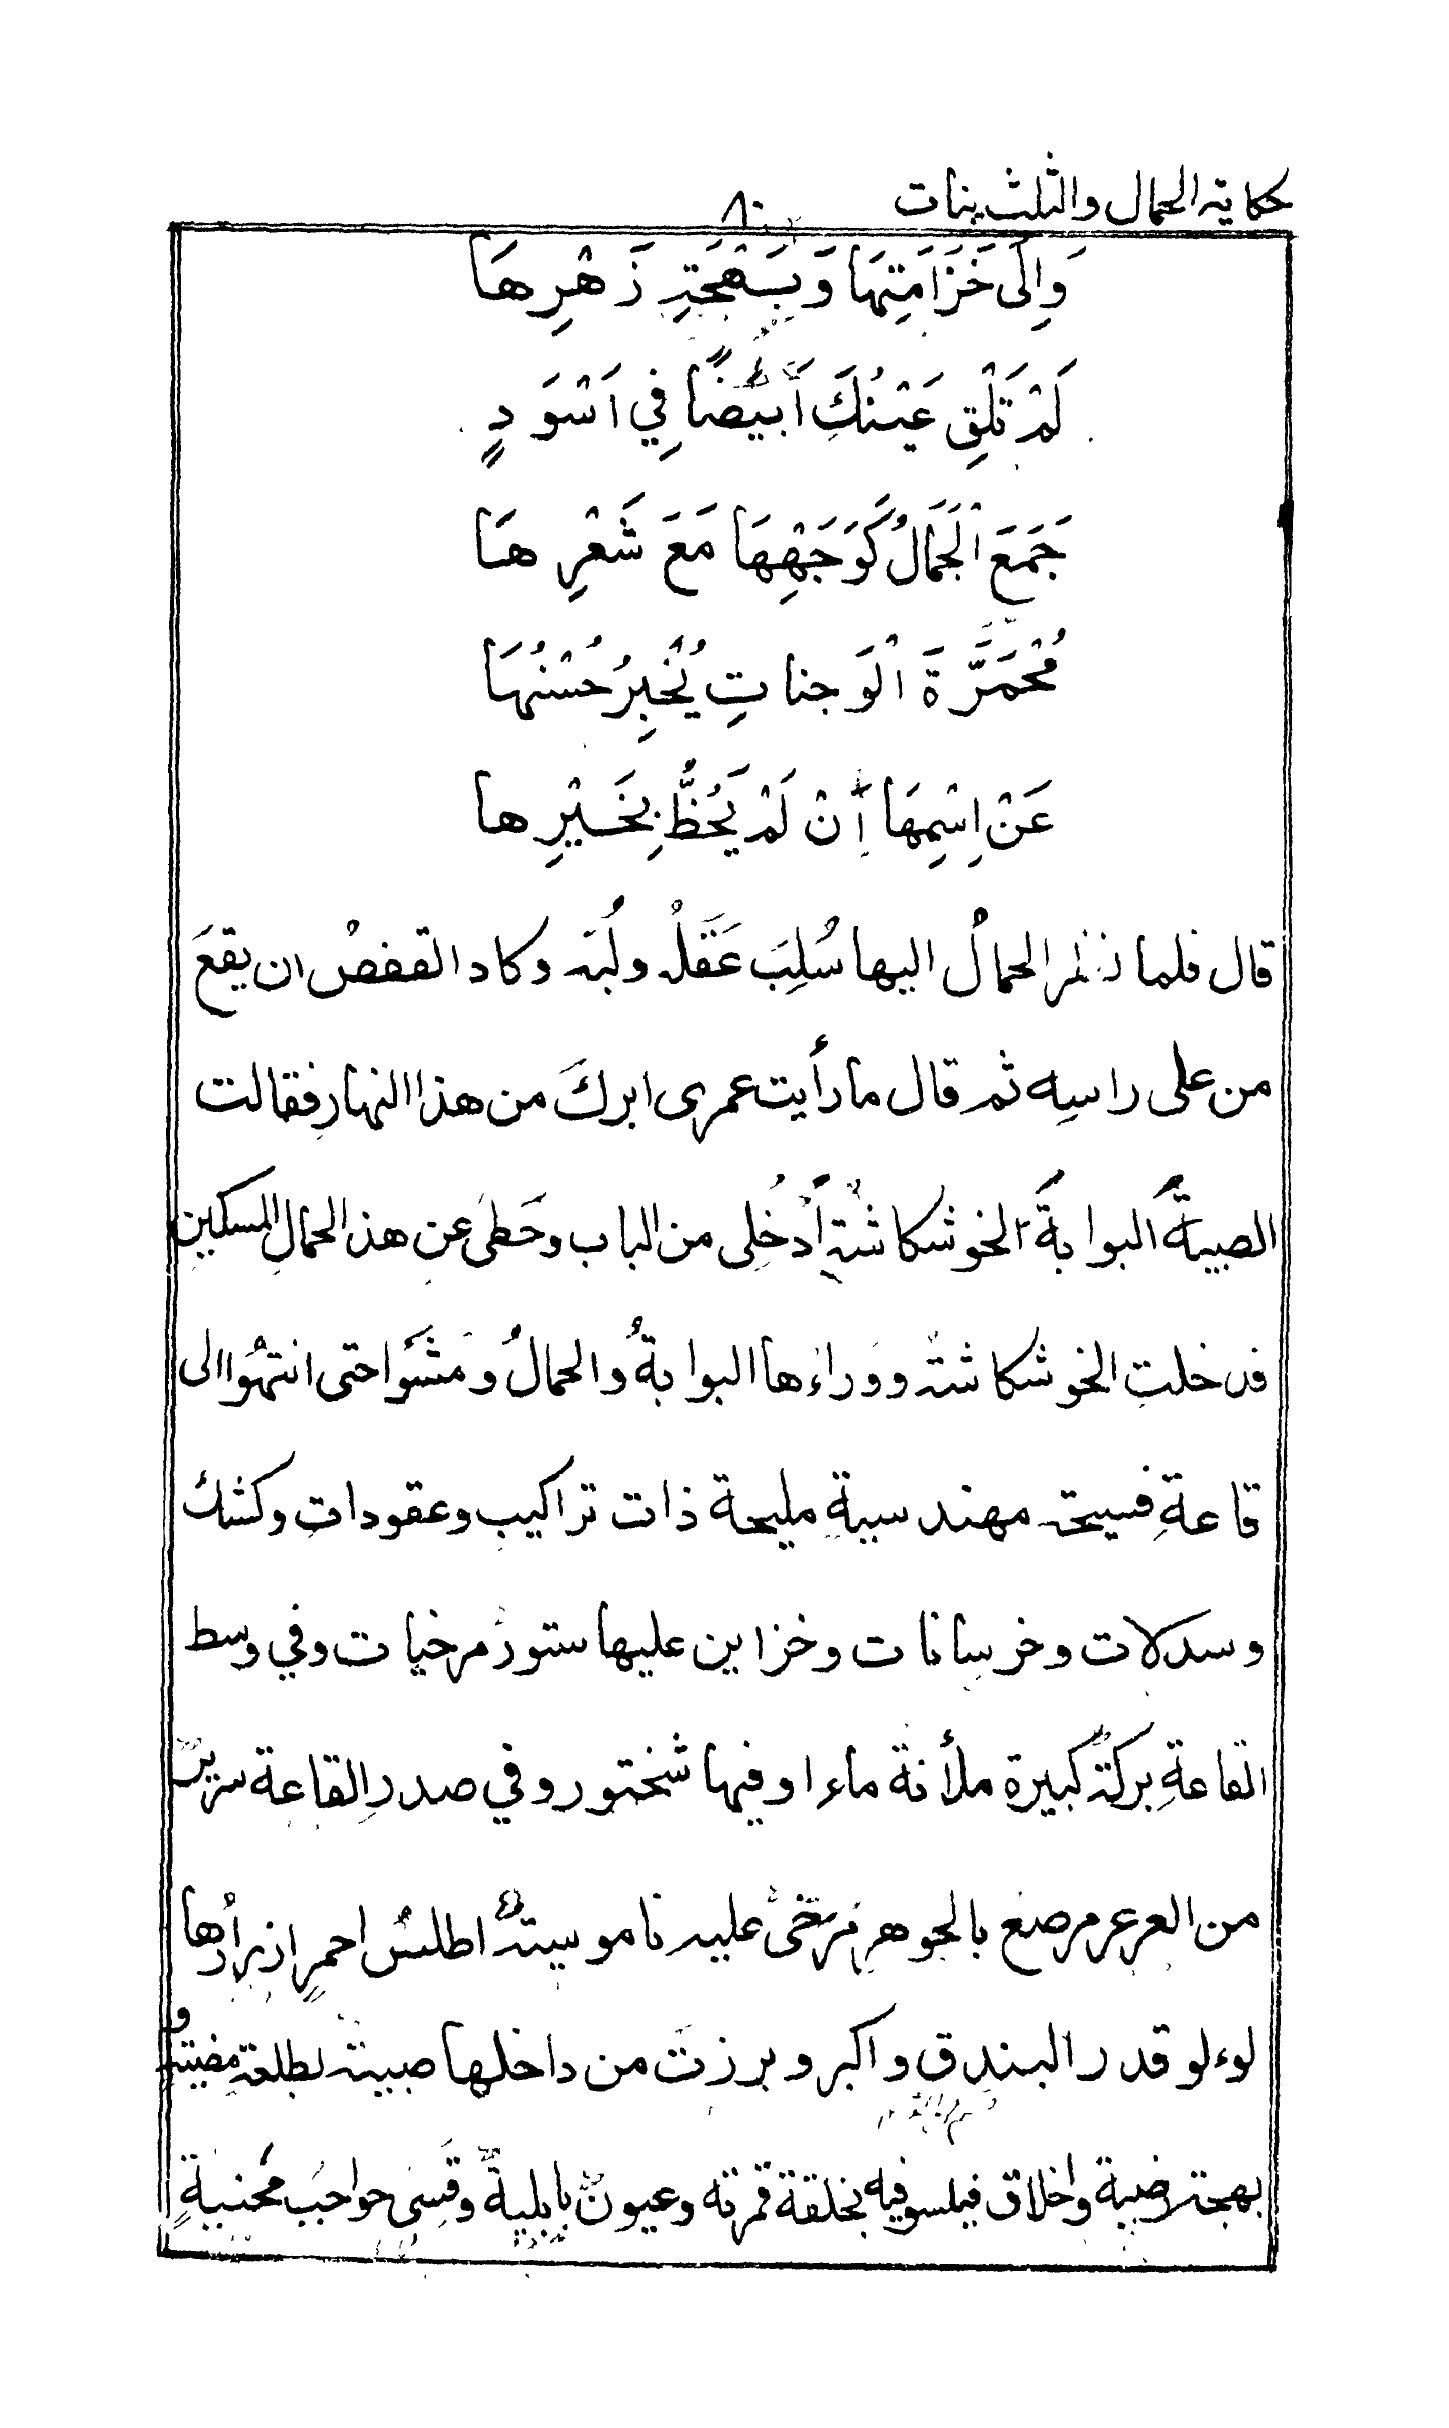 حكاية الحمال والثلث بنات
٨٠
وَإِلَى خَزَامَتِهَا وَبَسْهْجَتِهِ زَهْرِهَا
لَمْ تَلْقِ عَيْنُكَ أَبْيَضًا فِي اَسْوَدٍ
جَمَعَ الْجَمَالُ كَوَجَهْهِهَا مَعَ شَعْرِهَا
مُحْمَرَّةَ الْوَجناتِ يُخْبِرُ حُسْنُهَا
عَنْ اِسْمِهَا أَنْ لَمْ يَحُظَّ بِخَيْرِها
قال فلما نظر الحمالُ اليها سُلِبَ عَقَلْه ولُبَه وكاد القفصْ ان يقعَ
من على راسِه ثم قال ما رأيت عمرى ابركَ من هذا النهارِ فقالت
الصبيةُ البوابةُ الخوشكاشة أدخُلى من الباب وحَطى عن هذا الحمالِ المسكين
فدخلتِ الخوشكاشة ووراءها البوابةُ والحمالُ ومَشَوا حتى انتهُوا الى
قاعةِ فسيحة مهندسية مليحة ذات تراكيب وعقوداتِ وكشك
وسدلات وخرسانات وخزاين عليها ستورْ مرخيات وفي وسط
القاعةِ بركة كبيرة ملأنة ماءا وفيها شختور وفي صدرِ القاعة سرير
من العرعر مرصع بالجوهرِ مَرْخىْ عليه ناموسيةٌ اطلسٌ احمرٍ ازرارُها
لوءلو قدر البندق واكبر وبرزت من داخلها صبية بطلعةٍ مضيئة و
بهجة رضية واخلاق فيلسوفيه بخلقة قمرته وعيونْ بابليةٌ وقسَى حواجبْ محنيةٍ